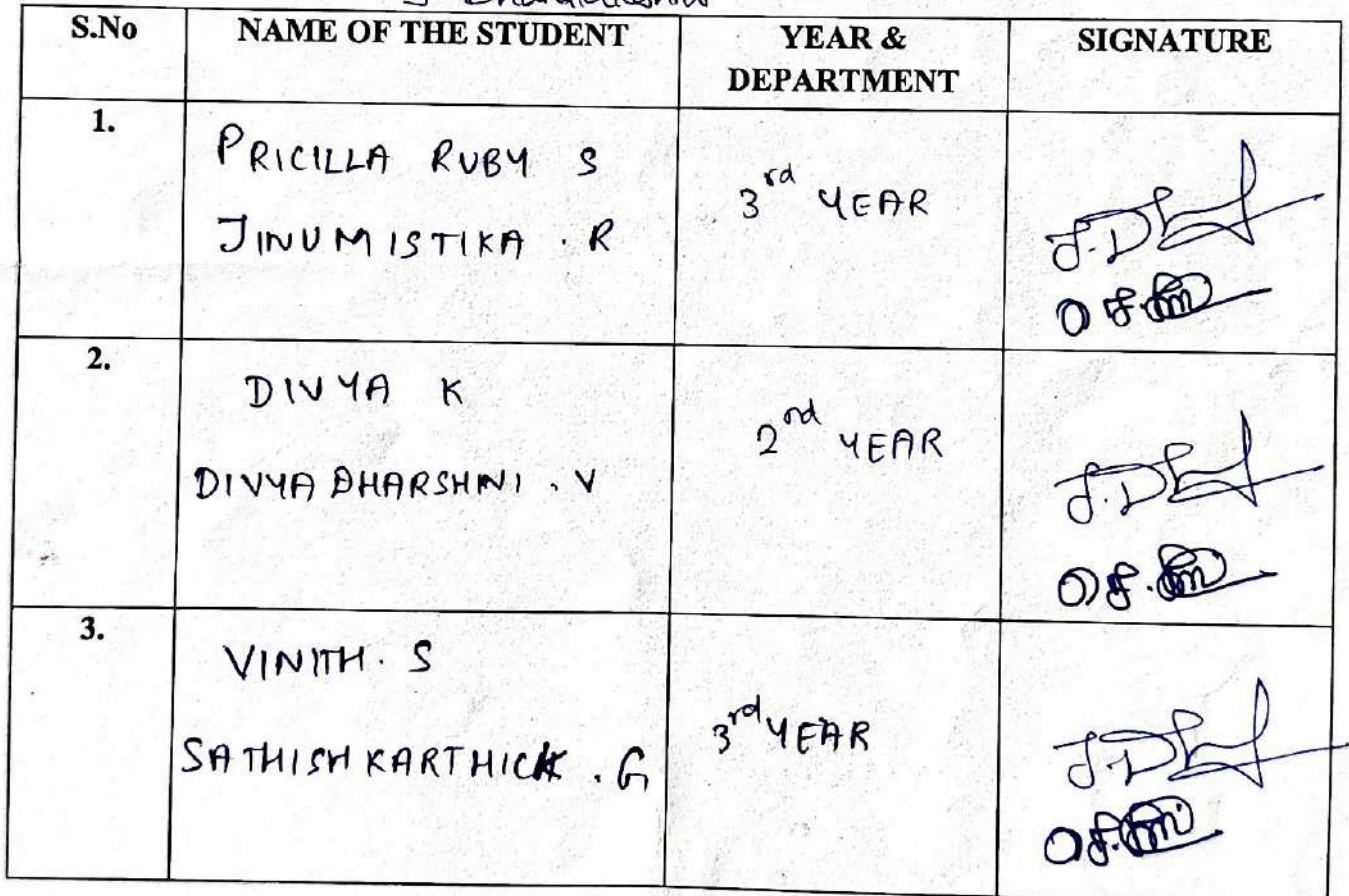 S.No NAME OF THE STUDENT YEAR & DEPARTMENT SIGNATURE
1. PRICILLA RUBY S
JINUMISTIKA . R
3rd YEAR
2. DIVYA K
DIVYA DHARSHINI . V
2nd YEAR
3. VINITH . S
SATHISH KARTHICK . G
3rd YEAR